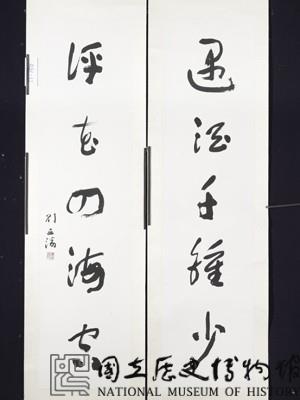 遇酒千鍾少
評四海
劉延濤
國立歷史博物館
NATIONAL MUSEUM OF HISTORY